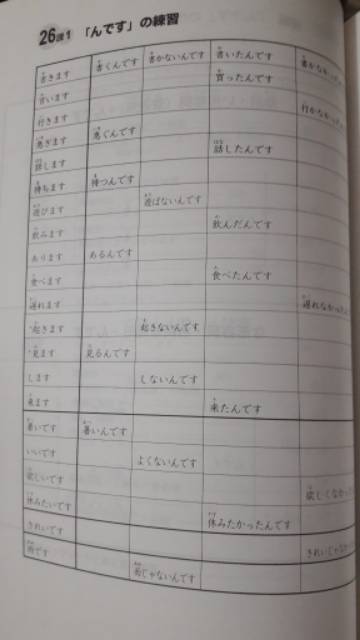 26課1 「んです」の練習
書きます 書くんです 書かないんです 書いたんです 書かなかっ
言います 買ったんです
行きます 行かなかっ
急ぎます 急ぐんです
話します 話したんです
待ちます 待つんです
遊びます 遊ばないんです
飲みます 飲んだんです
あります あるんです
食べます 食べたんです
遅れます 遅れなかった
起きます 起きないんです
見ます 見るんです
します しないんです
来ます 来たんです
暑いです 暑いんです
いいです よくないんです
欲しいです 欲しくなかった
休みたいです 休みたかったんです
きれいです きれいじゃなか
雨です 雨じゃないんです